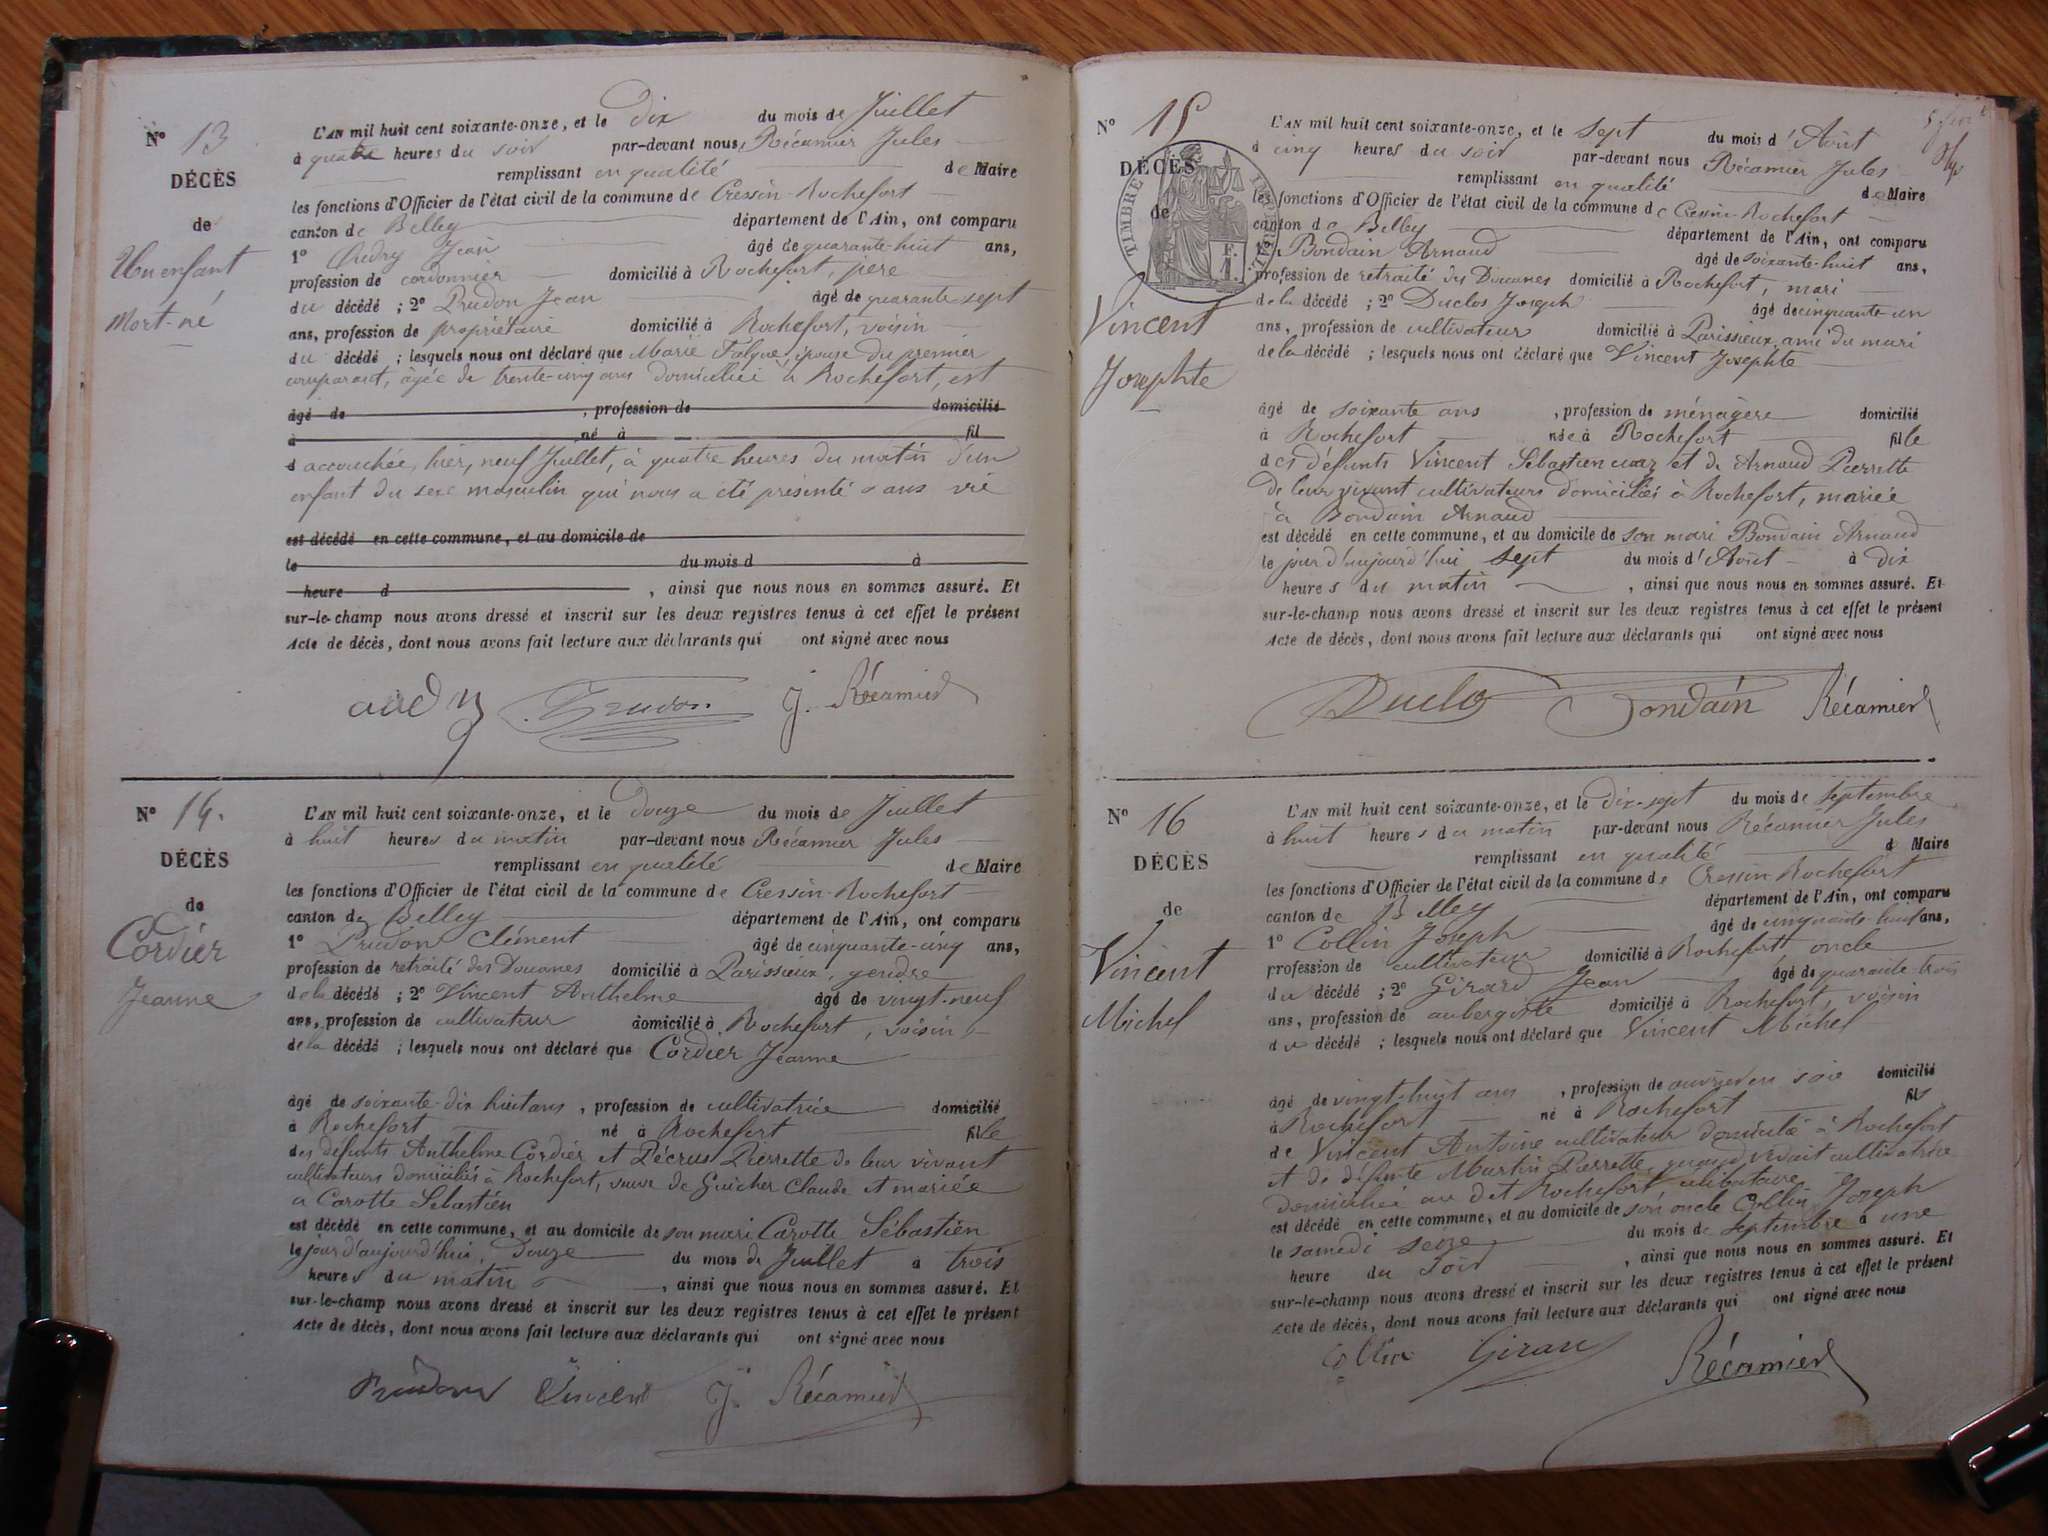 N° 13
DÉCÈS
de
Un enfant
Mort-né
L'AN mil huit cent soixante-onze, et le Dix du mois de Juillet
à quatre heures du soir par-devant nous, Récamier Jules
remplissant en qualité de Maire
les fonctions d'Officier de l'état civil de la commune de Cressin-Rochefort
canton de Belley département de l'Ain, ont comparu
1° Audry Jean âgé de quarante-huit ans,
profession de cordonnier domicilié à Rochefort, père
du décédé ; 2° Prudon Jean âgé de quarante sept
ans, profession de propriétaire domicilié à Rochefort, voisin
du décédé ; lesquels nous ont déclaré que Marie Falque, épouse du premier
comparant, âgée de trente-cinq ans domiciliée à Rochefort, est
âgé de , profession de domicilié
à né à fil
d accouchée, hier, neuf Juillet, à quatre heures du matin d'un
enfant du sexe masculin qui nous a été présenté sans vie
est décédé en cette commune, et au domicile de
le du mois d à
heure d , ainsi que nous nous en sommes assuré. Et
sur-le-champ nous avons dressé et inscrit sur les deux registres tenus à cet effet le présent
Acte de décès, dont nous avons fait lecture aux déclarants qui ont signé avec nous
Prudon. J. Récamier
N° 14.
DÉCÈS
de
Cordier
Jeanne
L'AN mil huit cent soixante-onze, et le Douze du mois de Juillet
à huit heures du matin par-devant nous Récamier Jules
remplissant en qualité de Maire
les fonctions d'Officier de l'état civil de la commune de Cressin-Rochefort
canton de Belley département de l'Ain, ont comparu
1° Prudon Clément âgé de cinquante-cinq ans,
profession de retraité des Douanes domicilié à Parissieux, gendre
de la décédé ; 2° Vincent Anthelme âgé de vingt-neuf
ans, profession de cultivateur domicilié à Rochefort, voisin
de la décédé ; lesquels nous ont déclaré que Cordier Jeanne
âgé de soixante-dix huit ans, profession de cultivatrice domicilié
à Rochefort né à Rochefort fille
des défunts Anthelme Cordier et Pécrus Pierrette de leur vivant
cultivateurs domiciliés à Rochefort, veuve de Guicher Claude et mariée
à Carotte Sébastien
est décédé en cette commune, et au domicile de son mari Carotte Sébastien
le jour d'aujourd'hui, Douze du mois de Juillet à trois
heures du matin , ainsi que nous nous en sommes assuré. Et
sur-le-champ nous avons dressé et inscrit sur les deux registres tenus à cet effet le présent
Acte de décès, dont nous avons fait lecture aux déclarants qui ont signé avec nous
Prudon Vincent J. Récamier
N° 15
DÉCÈS
de
TIMBRE IMPERIAL
F.
1.
Vincent
Josephte
L'AN mil huit cent soixante-onze, et le sept du mois d'Août
à cinq heures du soir par-devant nous Récamier Jules
remplissant en qualité de Maire
les fonctions d'Officier de l'état civil de la commune de Cressin-Rochefort
canton de Belley département de l'Ain, ont comparu
1° Bondain Arnaud âgé de soixante-huit ans,
profession de retraité des Douanes domicilié à Rochefort, mari
de la décédé ; 2° Duclos Joseph âgé de cinquante-un
ans, profession de cultivateur domicilié à Parissieux, ami du mari
de la décédé ; lesquels nous ont déclaré que Vincent Josephte
âgé de soixante ans , profession de ménagère domicilié
à Rochefort née à Rochefort fille
des défunts Vincent Sébastien et de Arnaud Pierrette
de leur vivant cultivateurs domiciliés à Rochefort, mariée
à Bondain Arnaud
est décédé en cette commune, et au domicile de son mari Bondain Arnaud
le jour d'aujourd'hui sept du mois d'Août à dix
heures du matin , ainsi que nous nous en sommes assuré. Et
sur-le-champ nous avons dressé et inscrit sur les deux registres tenus à cet effet le présent
Acte de décès, dont nous avons fait lecture aux déclarants qui ont signé avec nous
Duclos Bondain Récamier
N° 16
DÉCÈS
de
Vincent
Michel
L'AN mil huit cent soixante-onze, et le Dix-sept du mois de Septembre
à huit heures du matin par-devant nous Récamier Jules
remplissant en qualité d Maire
les fonctions d'Officier de l'état civil de la commune de Cressin-Rochefort
canton de Belley département de l'Ain, ont comparu
1° Collin Joseph âgé de cinquante-huit ans,
profession de cultivateur domicilié à Rochefort oncle
du décédé ; 2° Girard Jean âgé de quarante-trois
ans, profession de aubergiste domicilié à Rochefort, voisin
du décédé ; lesquels nous ont déclaré que Vincent Michel
âgé de vingt-huit ans , profession de ouvrier en soie domicilié
à Rochefort né à Rochefort fils
de Vincent Antoine cultivateur domicilié à Rochefort
et de défunte Martin Pierrette, quand vivait cultivatrice
domiciliée au dit Rochefort célibataire
est décédé en cette commune, et au domicile de son oncle Collin Joseph
le samedi seize du mois de Septembre à une
heure du soir , ainsi que nous nous en sommes assuré. Et
sur-le-champ nous avons dressé et inscrit sur les deux registres tenus à cet effet le présent
acte de décès, dont nous avons fait lecture aux déclarants qui ont signé avec nous
Collin Girard Récamier